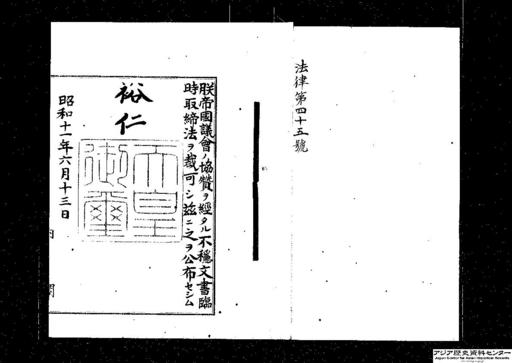 法律第四十五號
朕帝國議會ノ協贊ヲ經タル不穩文書臨
時取締法ヲ裁可シ茲ニ之ヲ公布セシム
裕仁
天皇
御璽
昭和十一年六月十三日
内閣
アジア歴史資料センター
Japan Center for Asian Historical Records